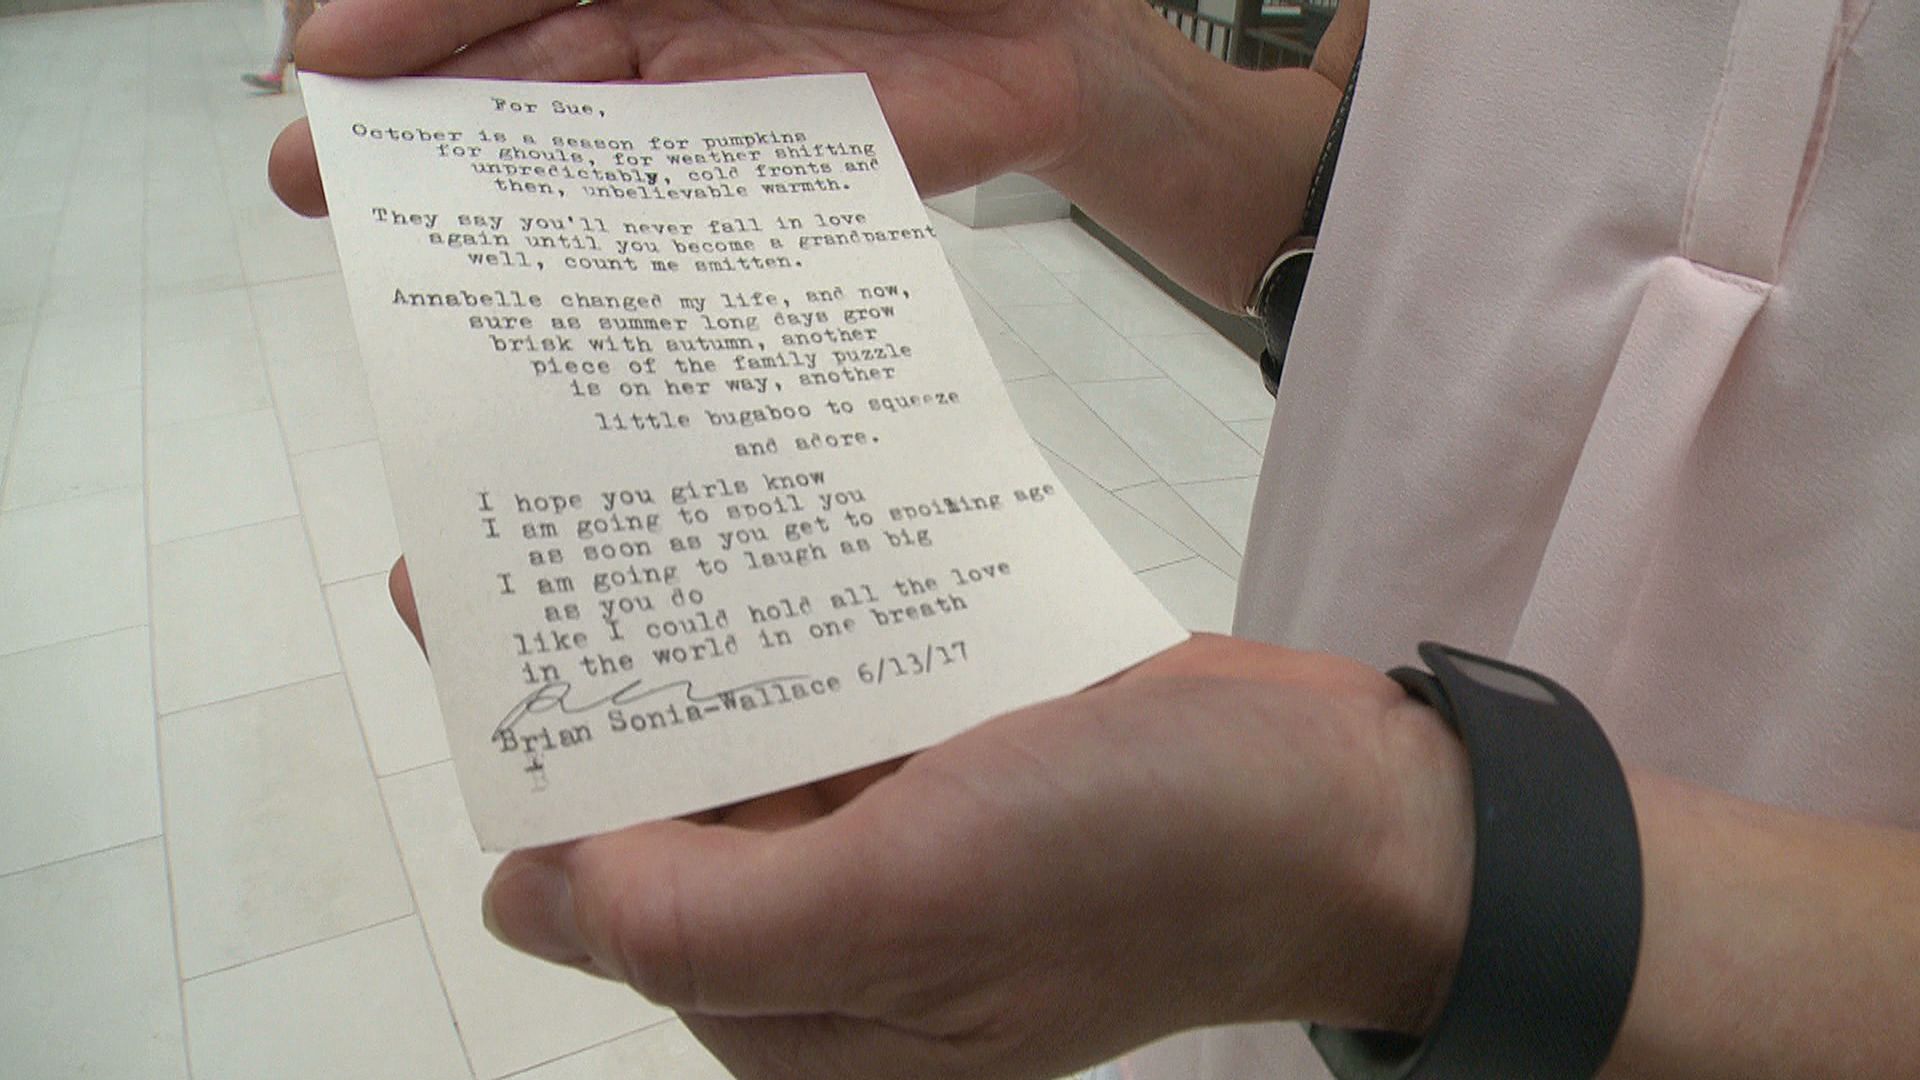 For Sue,
October is a season for pumpkins
for ghouls, for weather shifting
unpredictably, cold fronts and
then, unbelievable warmth.
They say you'll never fall in love
again until you become a grandparent
well, count me smitten.
Annabelle changed my life, and now,
sure as summer long days grow
brisk with autumn, another
piece of the family puzzle
is on her way, another
little bugaboo to squeeze
and adore.
I hope you girls know
I am going to spoil you
as soon as you get to spoiling age
I am going to laugh as big
as you do
like I could hold all the love
in the world in one breath
Brian Sonia-Wallace 6/13/17